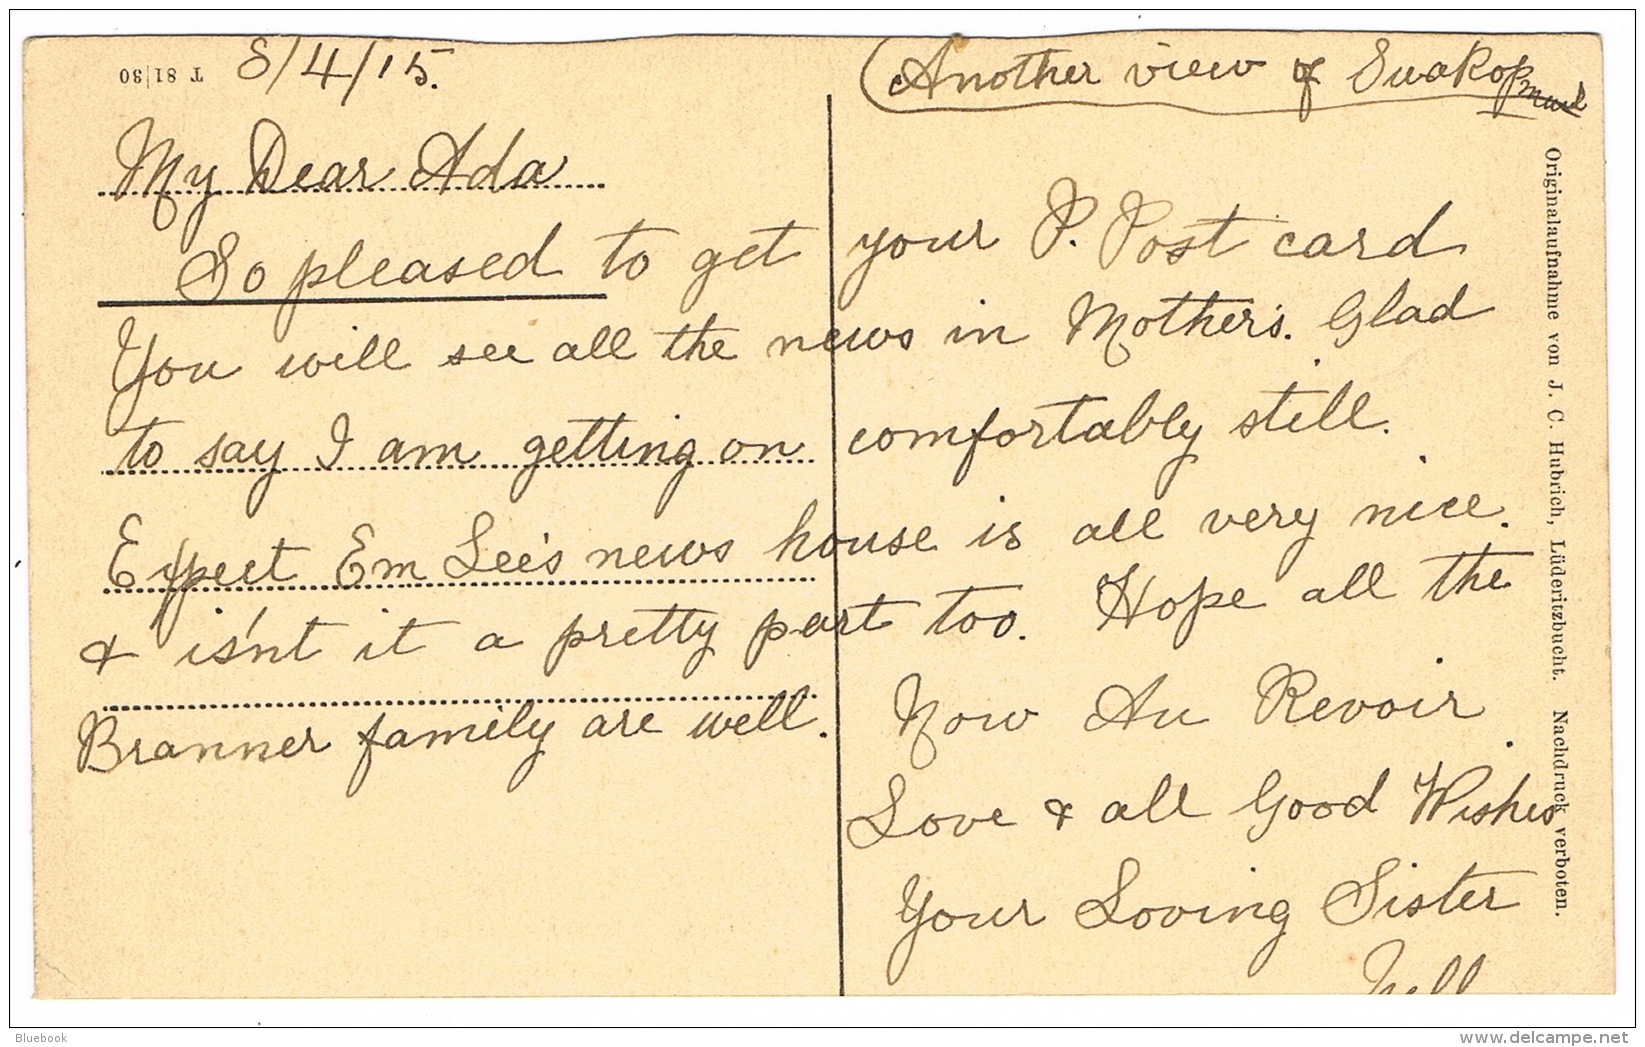 T 81|30
8/4/15.
(Another view of Swakopmund
My Dear Ada
So pleased to get your P. Post card
You will see all the news in Mother's. Glad
to say I am getting on comfortably still.
Expect Em Lee's news house is all very nice.
& is'nt it a pretty part too. Hope all the
Branner family are well. Now Au Revoir.
Love & all Good Wishes
Your Loving Sister
Originalaufnahme von J. C. Hubrich, Lüderitzbucht. Nachdruck verboten.
Bluebook
delcampe.net